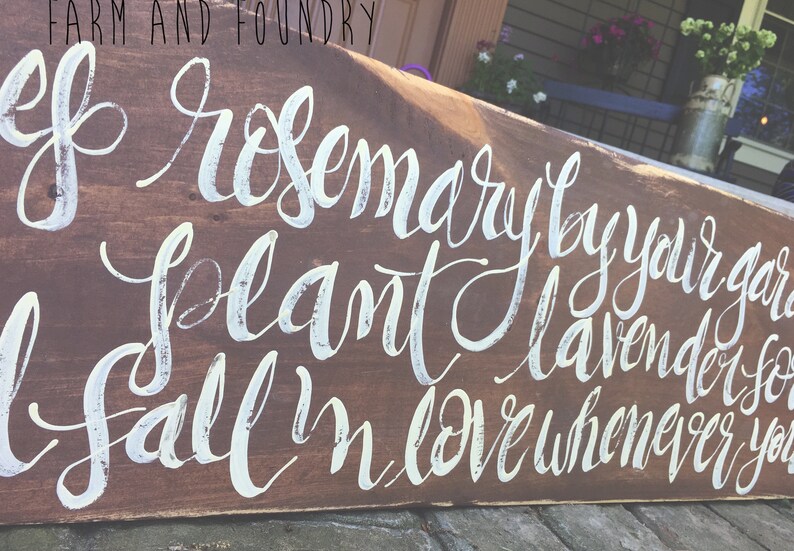 FARM AND FOUNDRY
rosemary by your gar
plant lavender for
fall in love whenever you